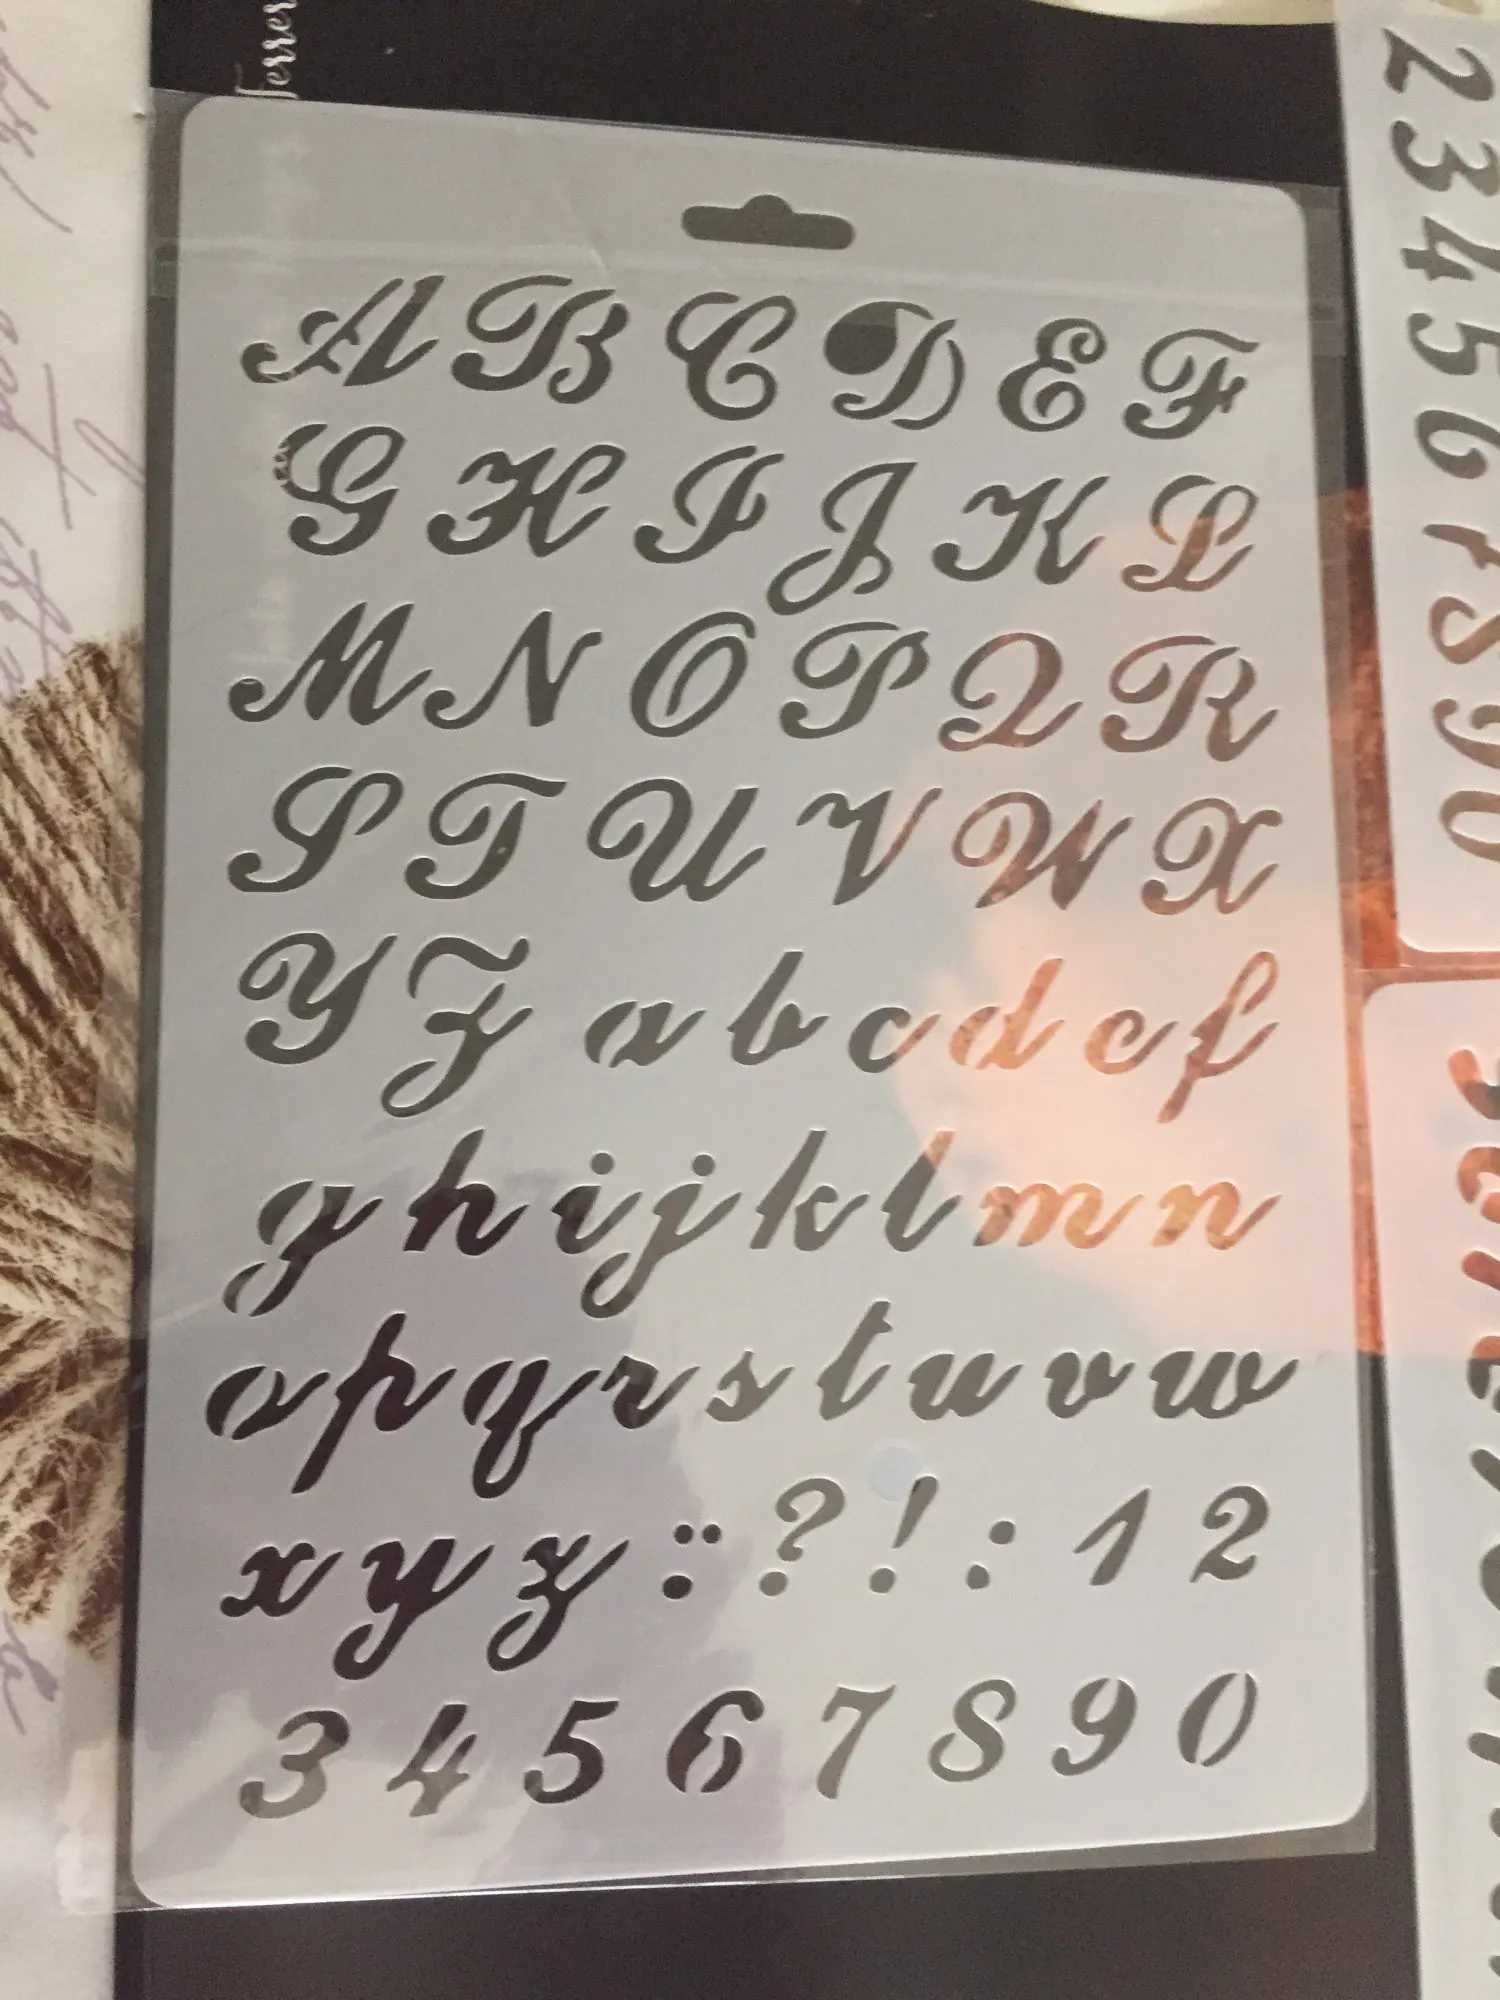 A B C D E F
G H I J K L
M N O P Q R
S T U V W X
Y Z a b c d e f
g h i j k l m n
o p q r s t u v w
x y z : ? ! : 1 2
3 4 5 6 7 8 9 0
2 3 4 5 6 7 8 9 0